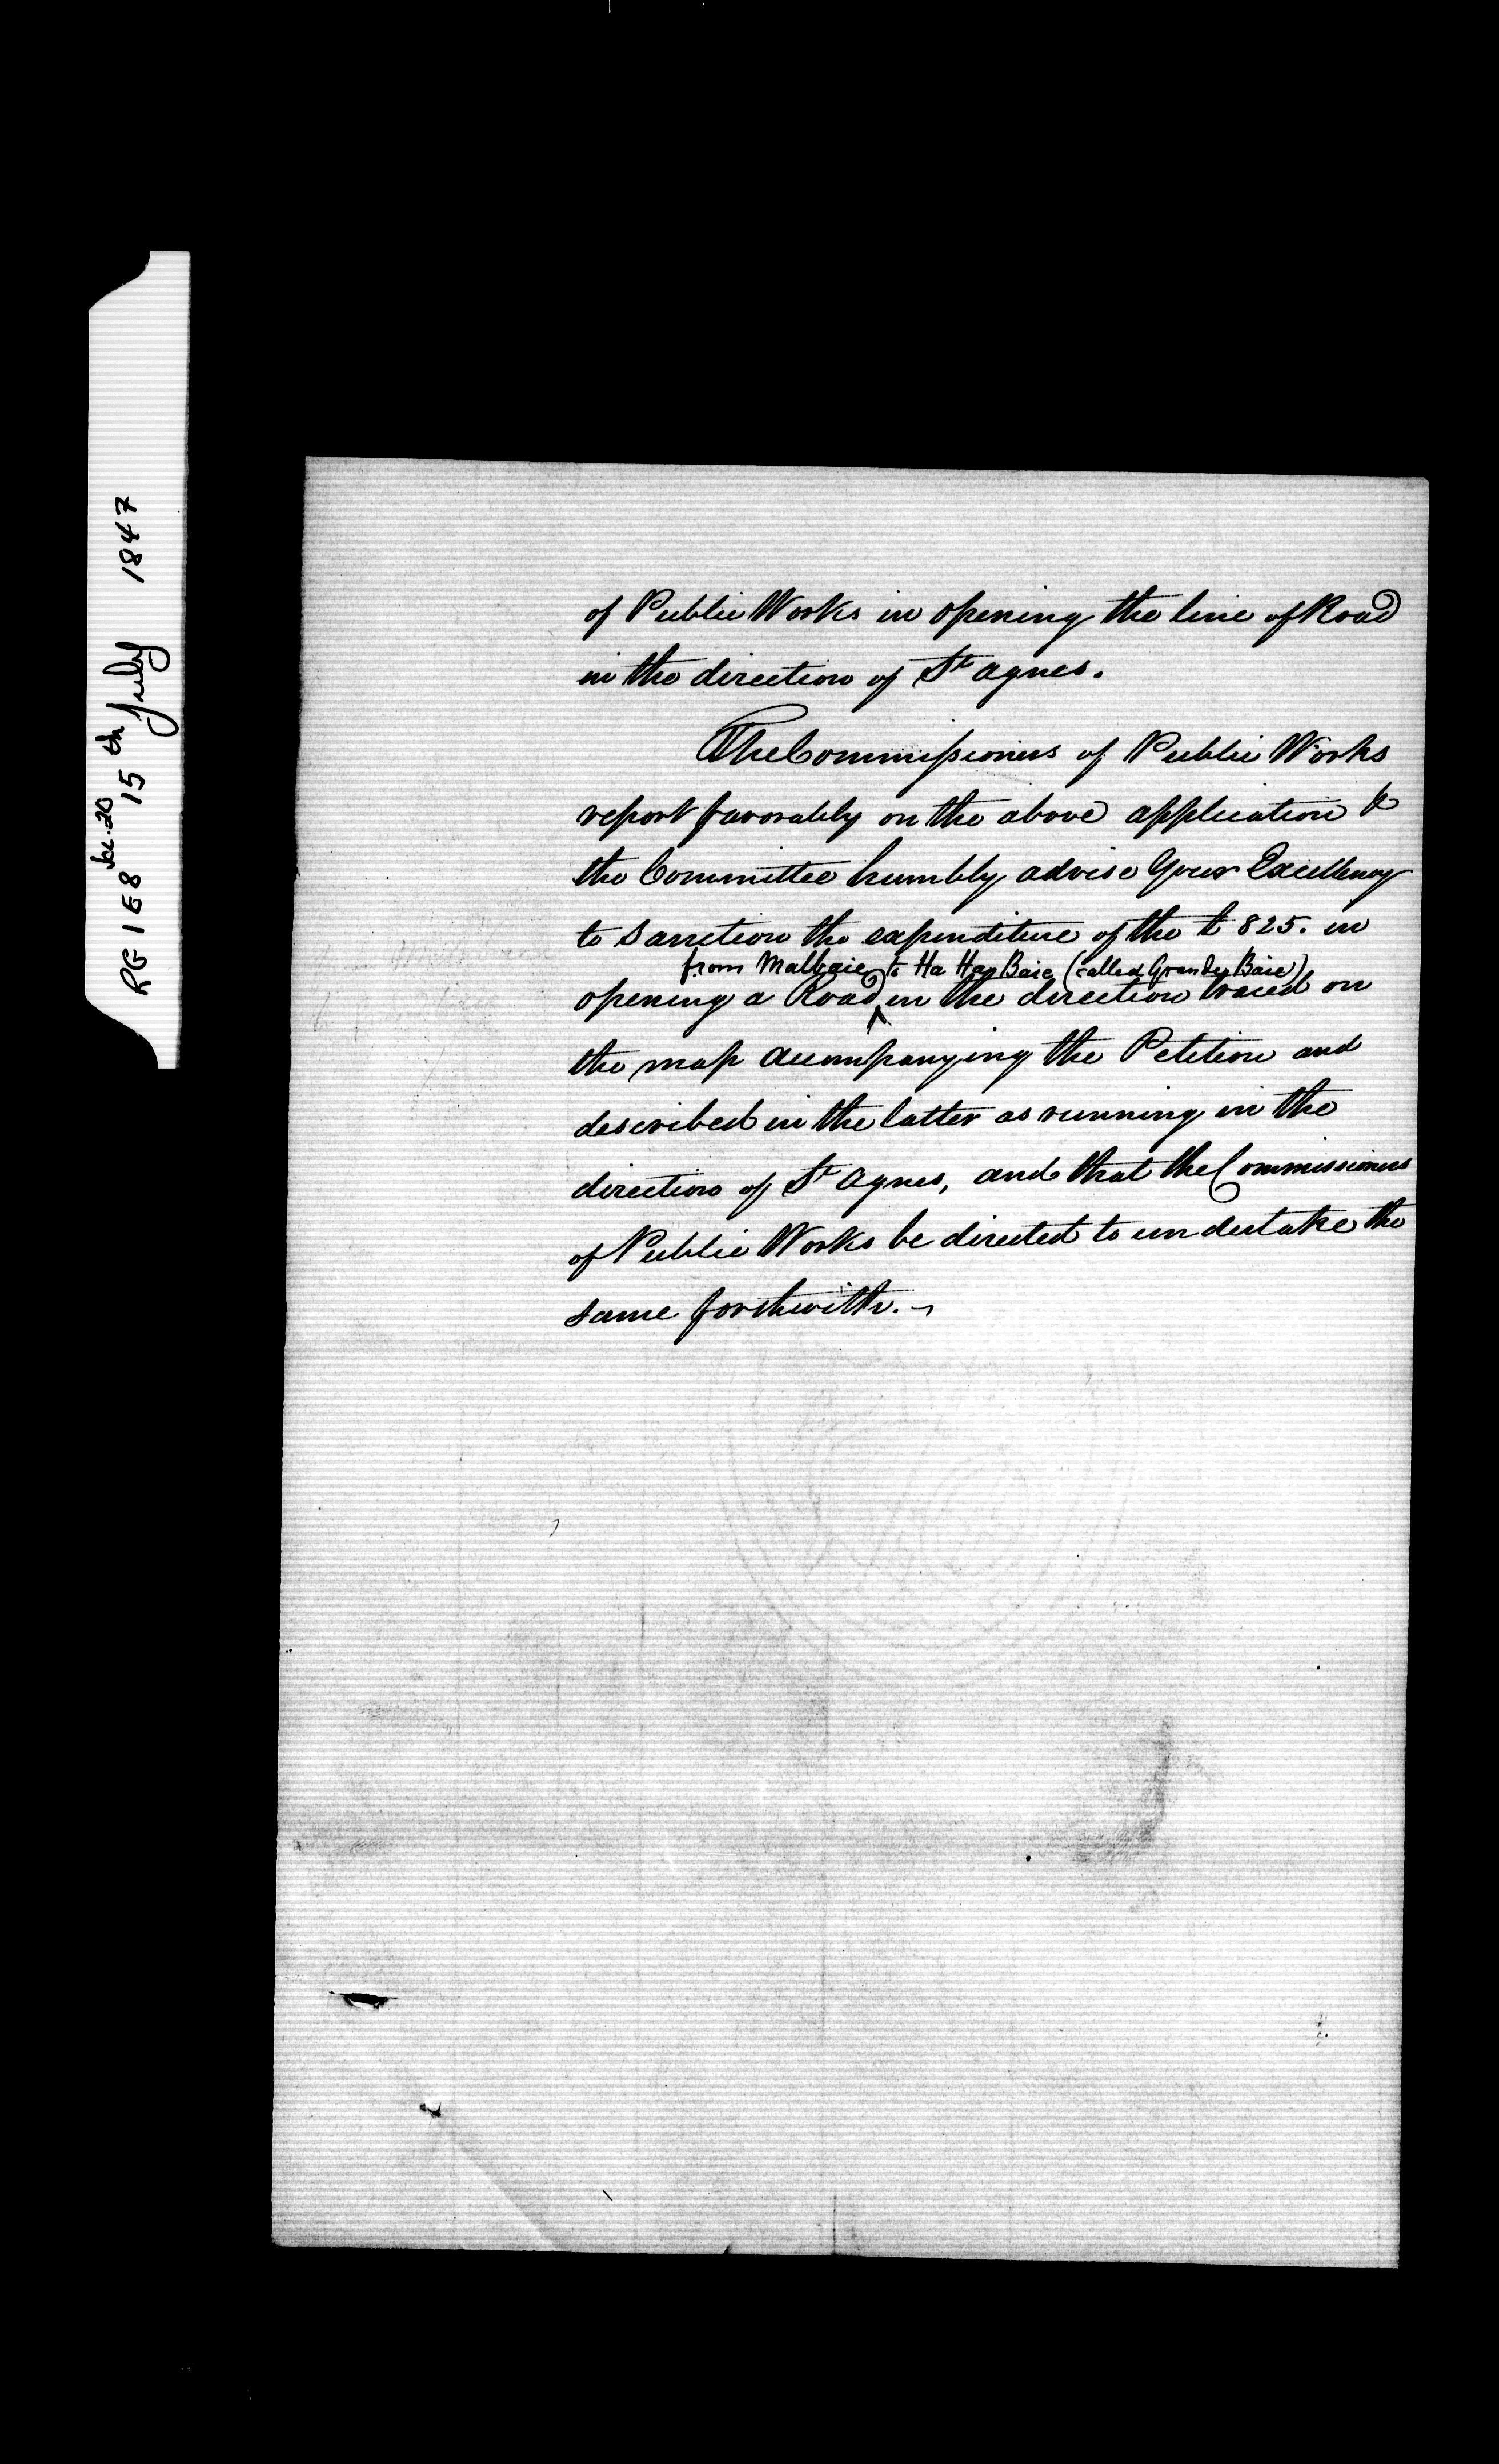 RG 1 E 8 vol. 20 15th July 1847
of Public Works in opening the line of Road
in the direction of St Agnes.
The Commissioners of Public Works
report favorably on the above application &
the Committee humbly advise Your Excellency
to sanction the expenditure of the £825. in
from Malbaie to Ha Ha Baie (called Grande Baie)
opening a Road ^ in the direction traced on
the map accompanying the Petition and
described in the latter as running in the
direction of St Agnes, and that the Commissioners
of Public Works be directed to undertake the
same forthwith. –